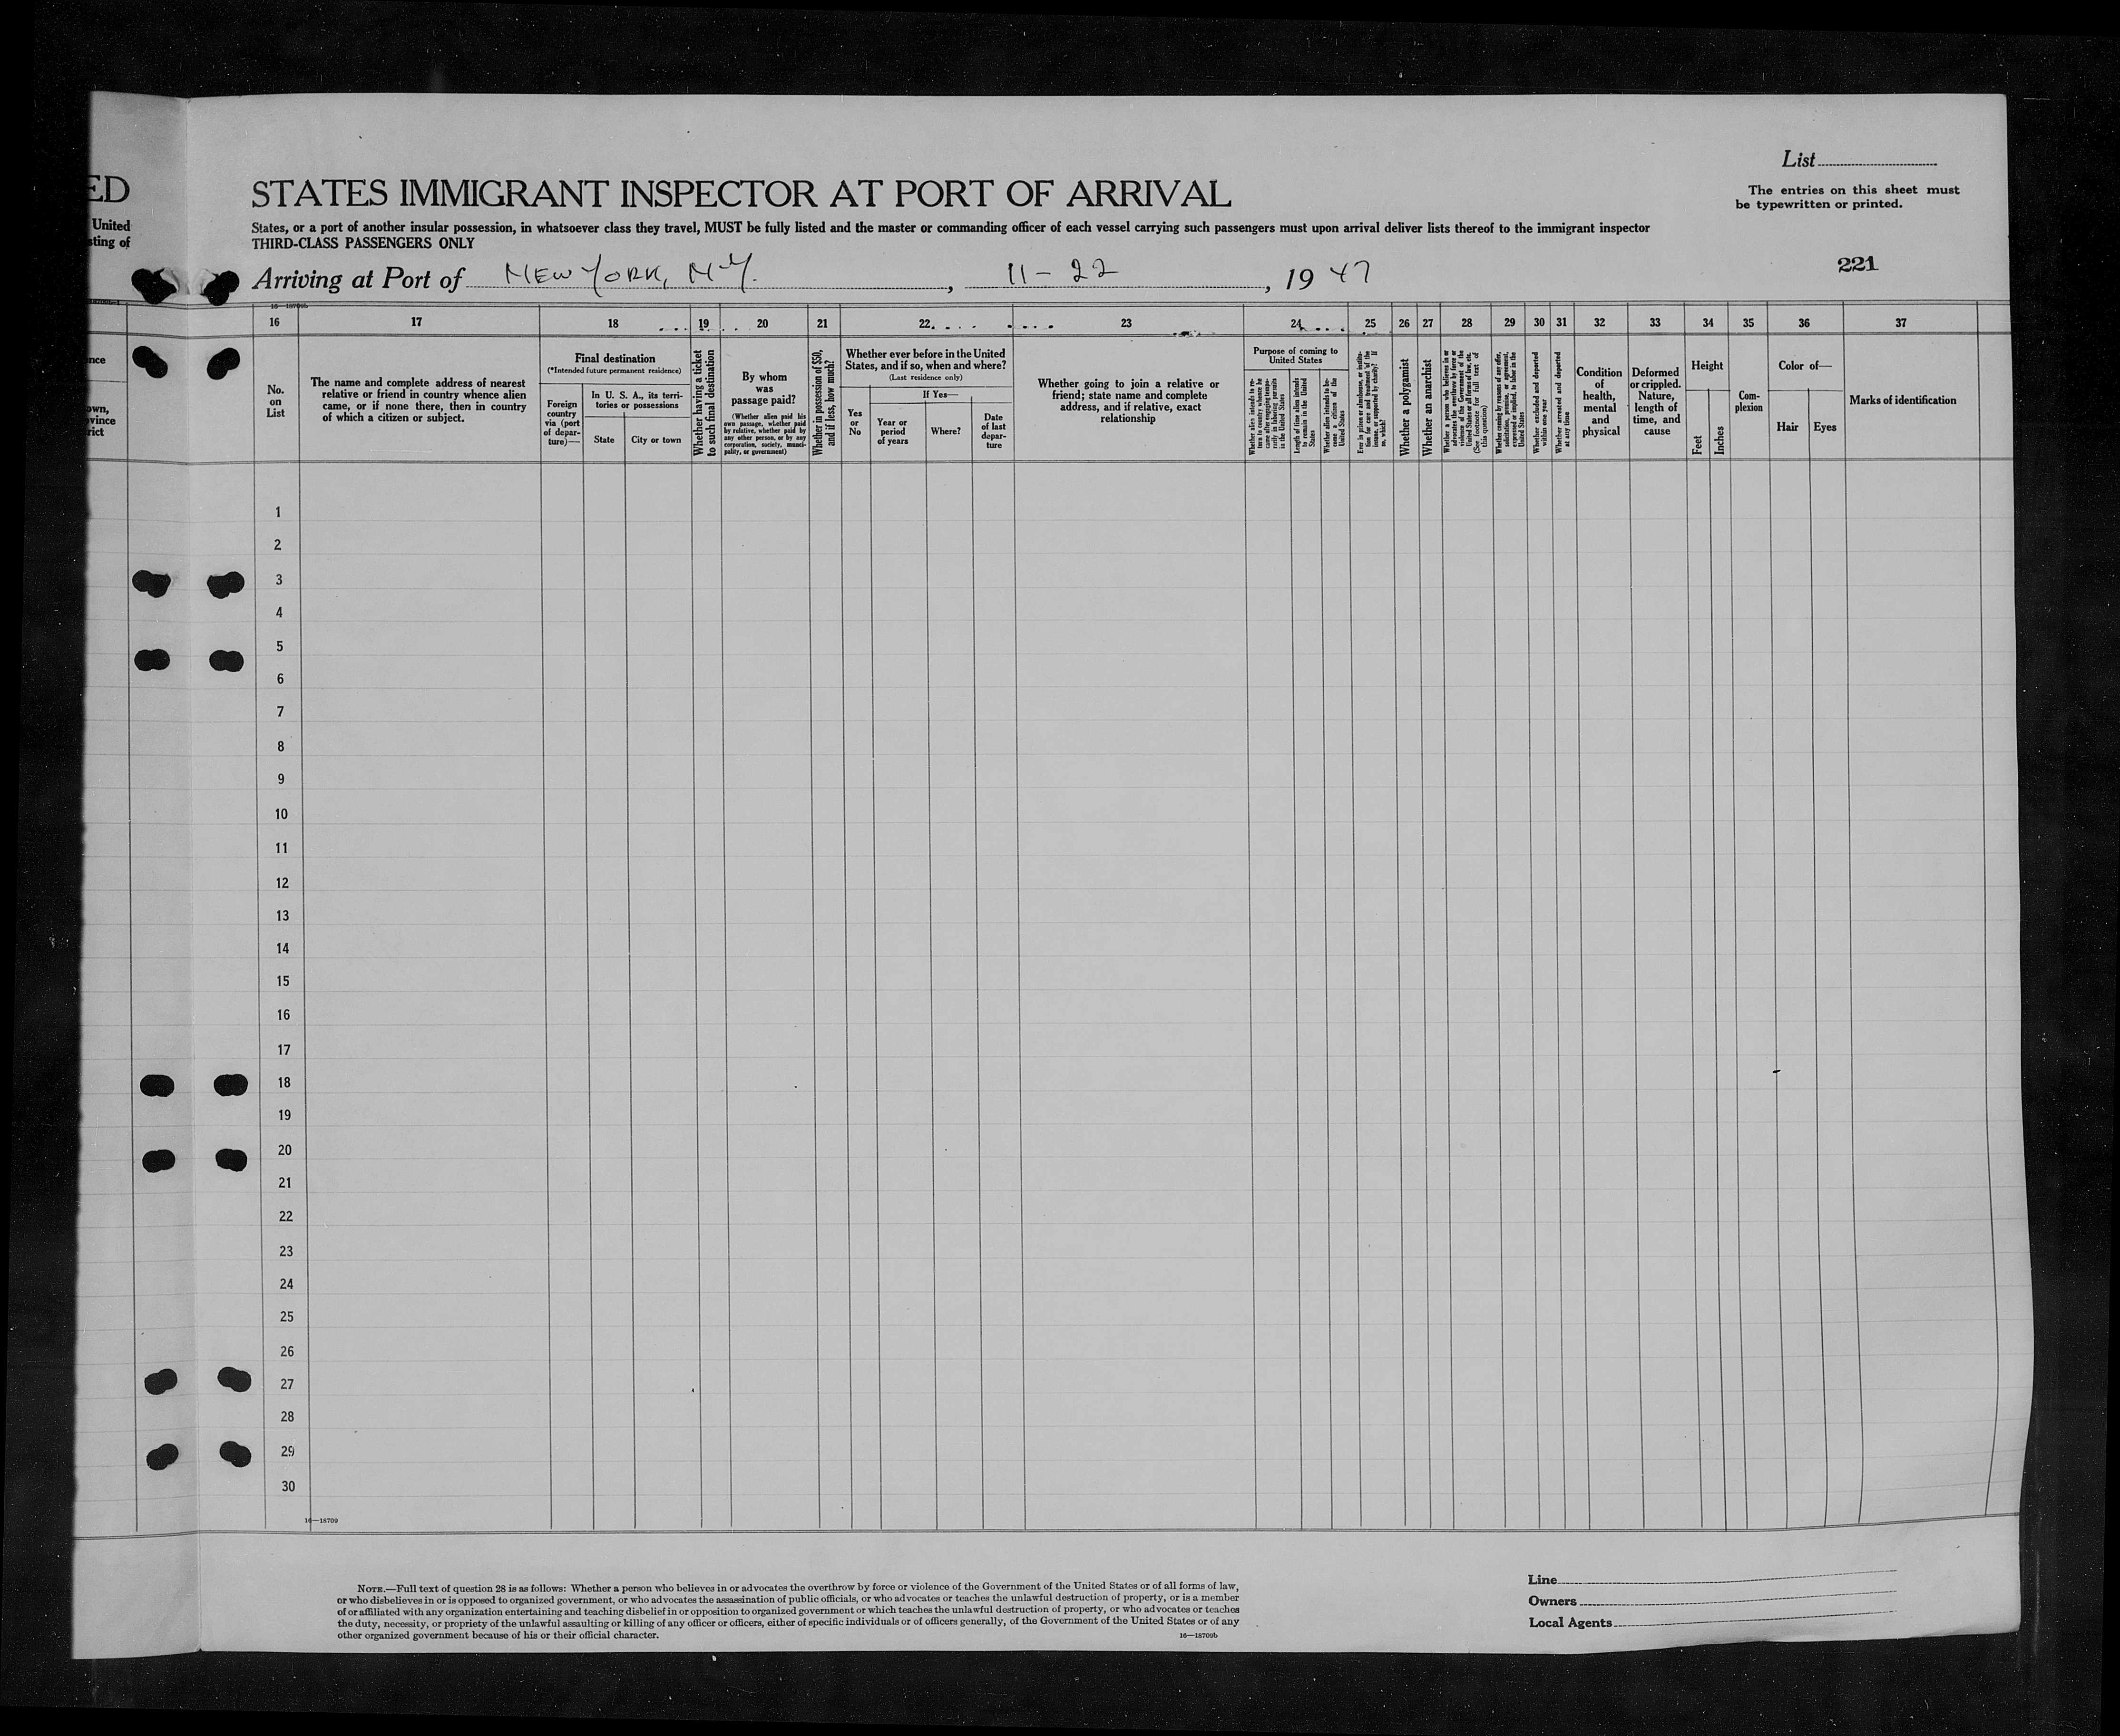 ED
United
sting of
List
STATES IMMIGRANT INSPECTOR AT PORT OF ARRIVAL
The entries on this sheet must
be typewritten or printed.
States, or a port of another insular possession, in whatsoever class they travel, MUST be fully listed and the master or commanding officer of each vessel carrying such passengers must upon arrival deliver lists thereof to the immigrant inspector
THIRD-CLASS PASSENGERS ONLY
221
Arriving at Port of NEW YORK, N.Y. , 11-22 , 19 47
16—18709b
16 17 18 19 20 21 22 23 24 25 26 27 28 29 30 31 32 33 34 35 36 37
nce
own,
ovince
rict
No.
on
List
The name and complete address of nearest
relative or friend in country whence alien
came, or if none there, then in country
of which a citizen or subject.
Final destination
(*Intended future permanent residence)
Foreign
country
via (port
of depar-
ture)—
In U. S. A., its terri-
tories or possessions
State
City or town
Whether having a ticket
to such final destination
By whom
was
passage paid?
(Whether alien paid his
own passage, whether paid
by relative, whether paid by
any other person, or by any
corporation, society, munici-
pality, or government)
Whether in possession of $50,
and if less, how much?
Whether ever before in the United
States, and if so, when and where?
(Last residence only)
Yes
or
No
If Yes—
Year or
period
of years
Where?
Date
of last
depar-
ture
Whether going to join a relative or
friend; state name and complete
address, and if relative, exact
relationship
Purpose of coming to
United States
Whether alien intends to re-
turn to country whence he
came after engaging tempo-
rarily in laboring pursuits
in the United States
Length of time alien intends
to remain in the United
States
Whether alien intends to be-
come a citizen of the
United States
Ever in prison or almshouse, or institu-
tion for care and treatment of the
insane, or supported by charity? If
so, which?
Whether a polygamist
Whether an anarchist
Whether a person who believes in or
advocates the overthrow by force or
violence of the Government of the
United States or all forms of law, etc.
(See footnote for full text of
this question)
Whether coming by reason of any offer,
solicitation, promise, or agreement,
expressed or implied, to labor in the
United States
Whether excluded and deported
within one year
Whether arrested and deported
at any time
Condition
of
health,
mental
and
physical
Deformed
or crippled.
Nature,
length of
time, and
cause
Height
Feet
Inches
Com-
plexion
Color of—
Hair
Eyes
Marks of identification
1
2
3
4
5
6
7
8
9
10
11
12
13
14
15
16
17
18
19
20
21
22
23
24
25
26
27
28
29
30
16—18709
NOTE.—Full text of question 28 is as follows: Whether a person who believes in or advocates the overthrow by force or violence of the Government of the United States or of all forms of law,
or who disbelieves in or is opposed to organized government, or who advocates the assassination of public officials, or who advocates or teaches the unlawful destruction of property, or is a member
of or affiliated with any organization entertaining and teaching disbelief in or opposition to organized government or which teaches the unlawful destruction of property, or who advocates or teaches
the duty, necessity, or propriety of the unlawful assaulting or killing of any officer or officers, either of specific individuals or of officers generally, of the Government of the United States or of any
other organized government because of his or their official character.
16—18709b
Line
Owners
Local Agents